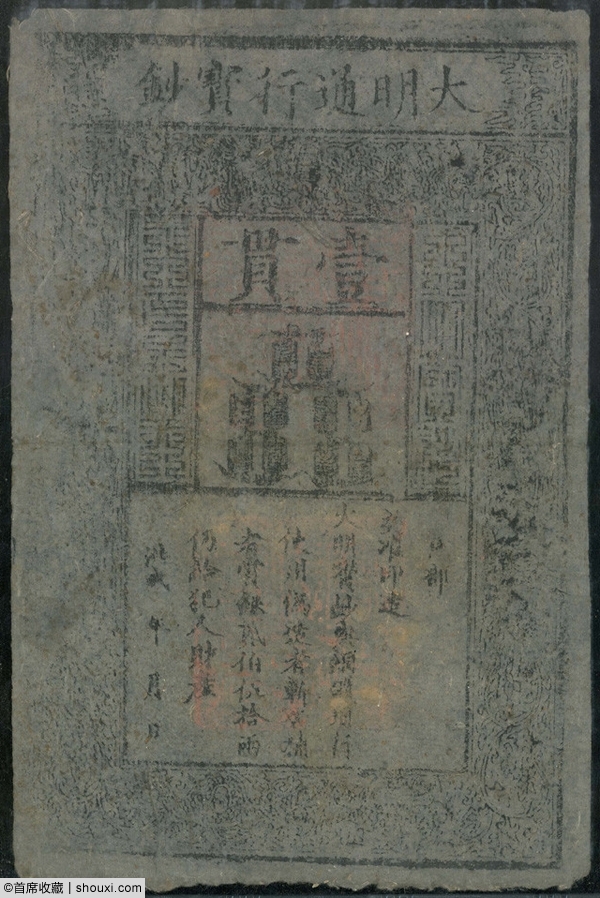 大明通行寶鈔
壹貫
户部
奏准印造
大明寶鈔與銅錢通行
使用偽造者斬告捕
者賞銀貳伯伍拾兩
仍給犯人財產
洪武 年 月 日
©首席收藏 | shouxi.com